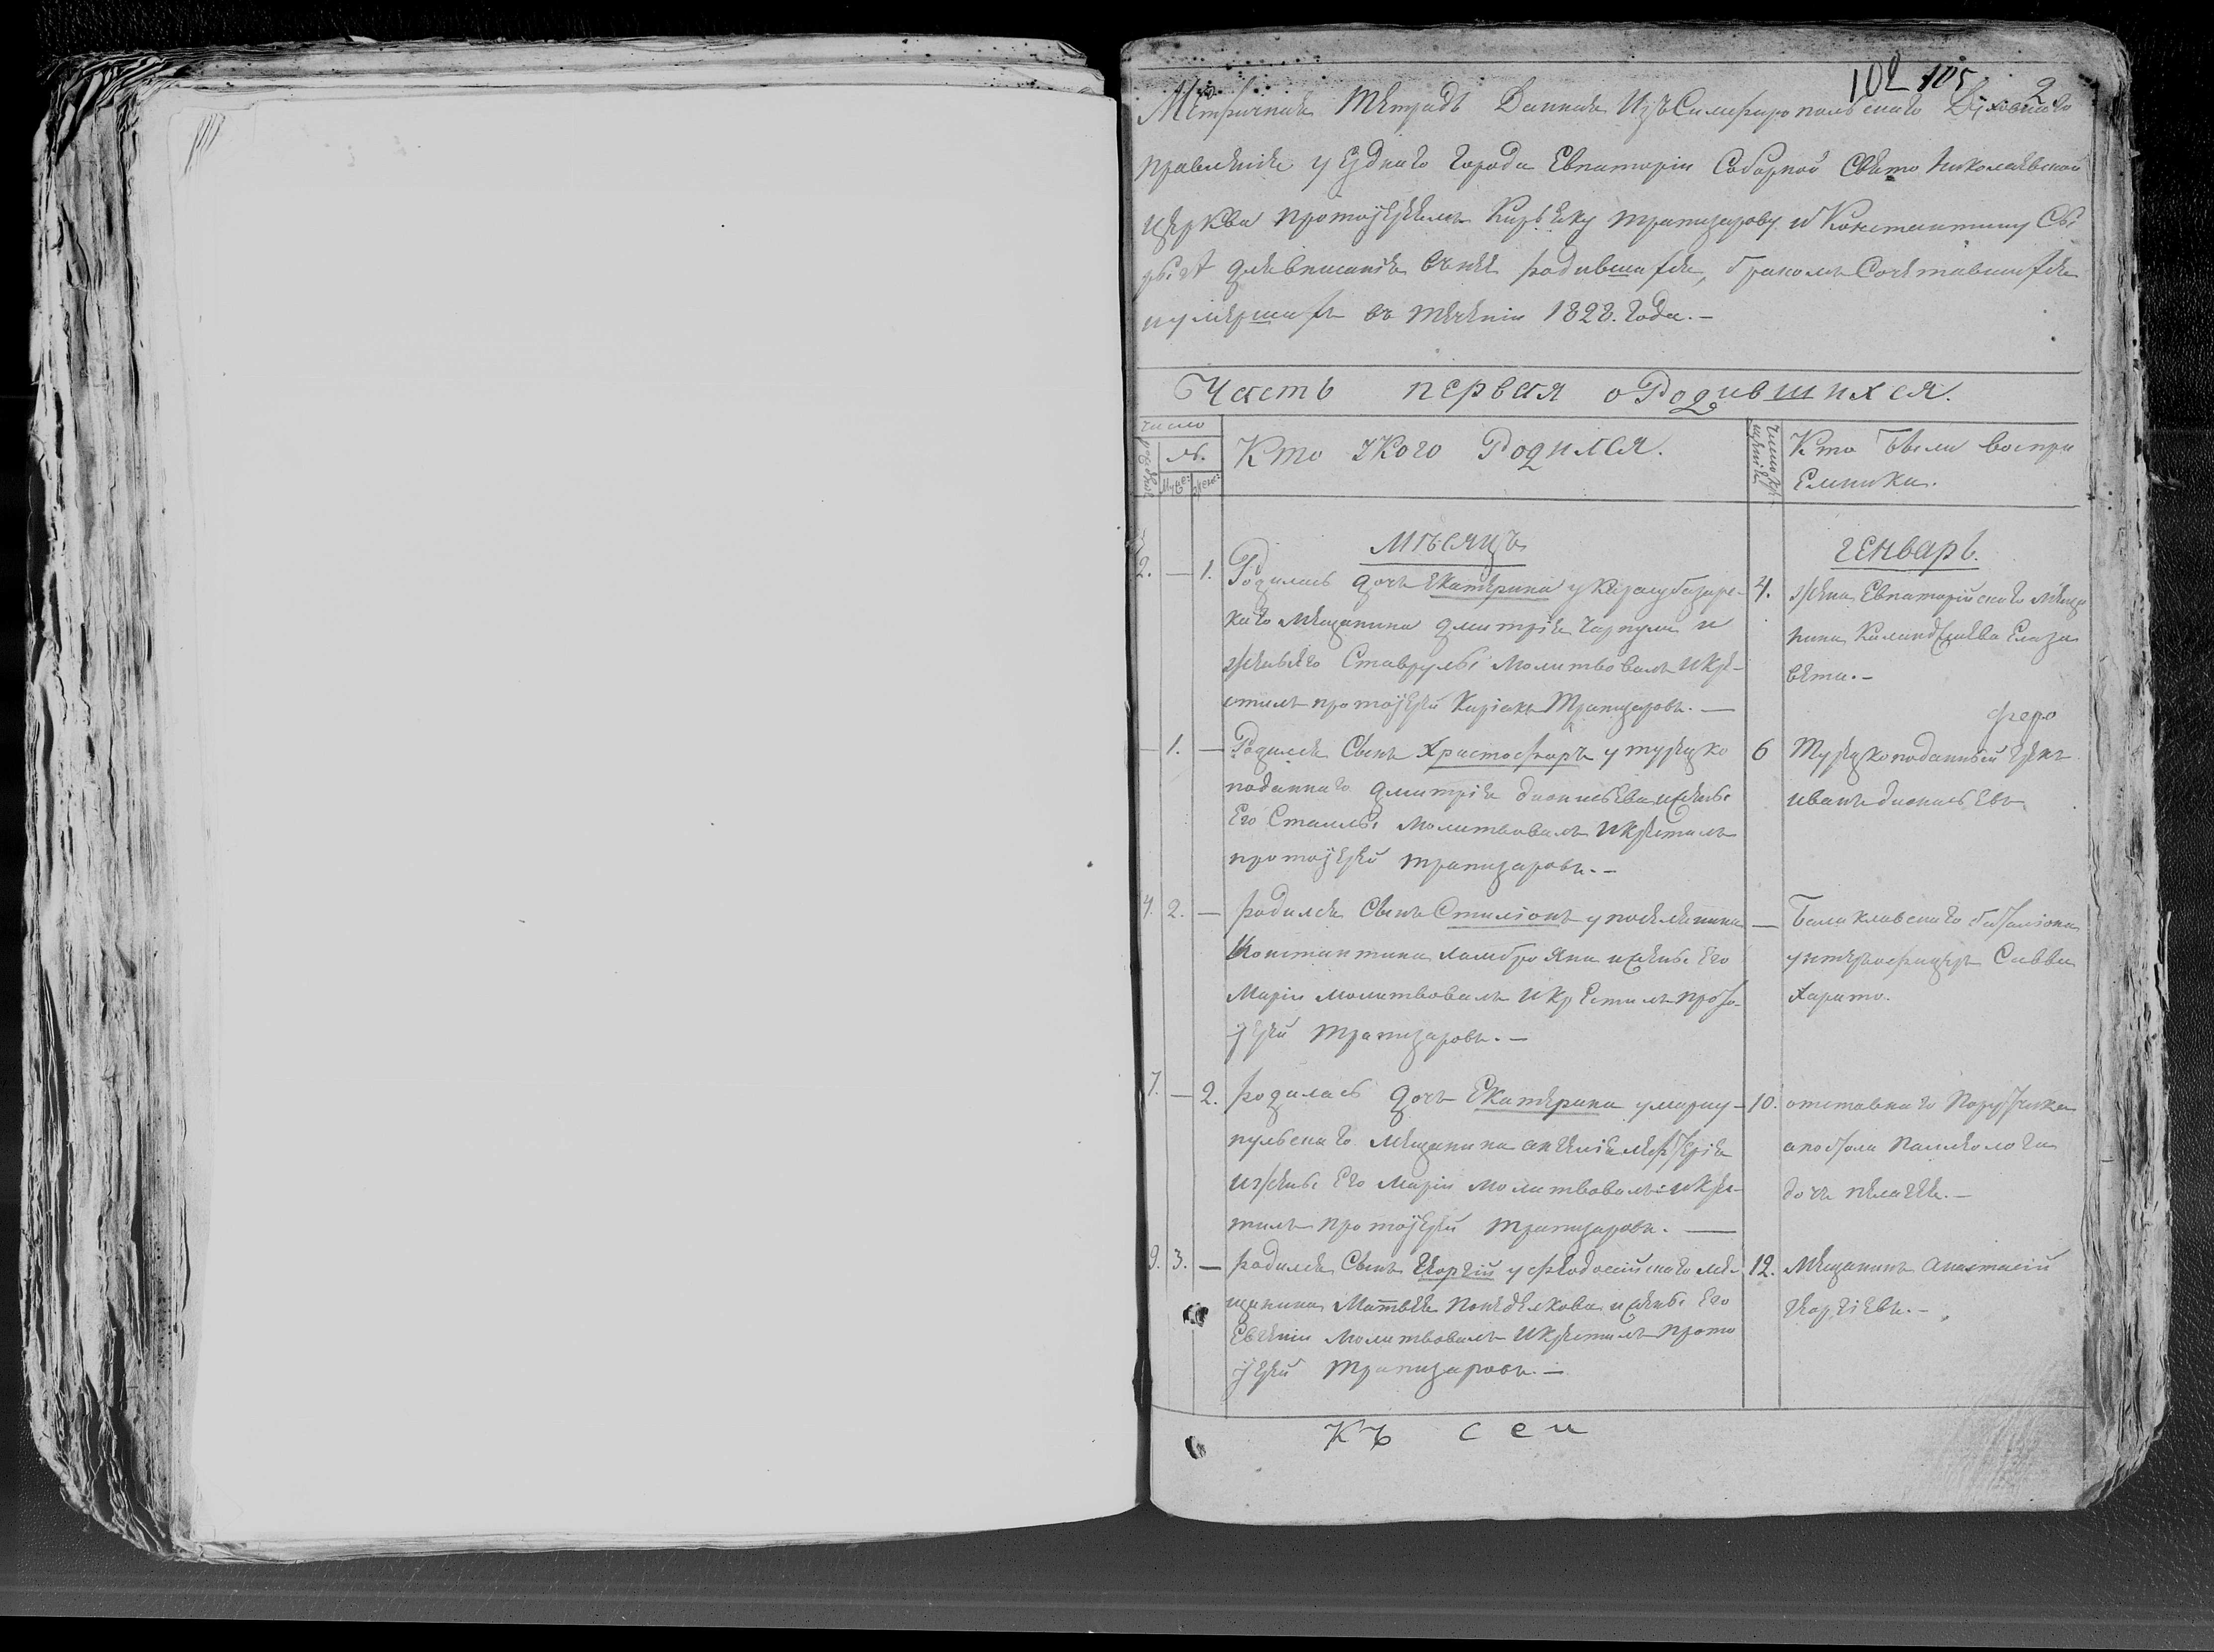 102 105 2
Метричная тетрадь Данная Изъ Симферопольскаго Духовнаго
правленія уѣзднаго города Евпаторіи Соборной Свято Николаевской
церкви протоіерѣямъ Трапизарову и Константину
для вписанія въ нѣе родившихся, бракомъ Сочетавшихся
иумершихъ въ теченіи 1828. Года.-
Часть первая о Родившихся.
число
№.
Муже: жен:
Кто укого Родился.
Кто были воспри
Емники.
Мѣсяцъ
Генварь.
2. — 1. Родилась дочь Екатерина у Карасубазарс-
каго мѣщанина дмитрія и
жены его Ставрулы молитвовалъ икре-
стилъ протоіерей Киріакъ Трапизаровъ. —
4. жена Евпаторійскаго мѣща
нина Елиза
вета.-
— 1. — Родился Сынъ Христофоръ у турецко
подданнаго дмитрія дионисьева ижены
Его молитвовалъ икрестилъ
протоіерей трапизаровъ.-
6 Турецкоподанный грекъ
иванъ дионисьевъ
4. 2. — родился Сынъ Стиліонъ у поселянина
Константина ламбро Яни ижены Его
Маріи молитвовалъ икрестилъ прото-
іерей трапизаровъ.-
— Балаклавскаго баталіона
унтеръофицеръ Савва
Харито.
7. — 2. родилась дочь Екатерина умариу-
пульскаго мещанина
ижены Его Маріи молитвовалъ икрес-
тилъ протоіерей трапизаровъ. —
10. отставнаго Поручика
апостола палеолога
дочь пелагея.-
9. 3. — родился Сынъ Георгій у феодосійскаго ме-
щанина Матвея ижены Его
Евгеніи молитвовалъ икрестилъ прото
іерей трапизаровъ.-
12. Мещанинъ анастасій
георгіевъ.-
Къ сеи